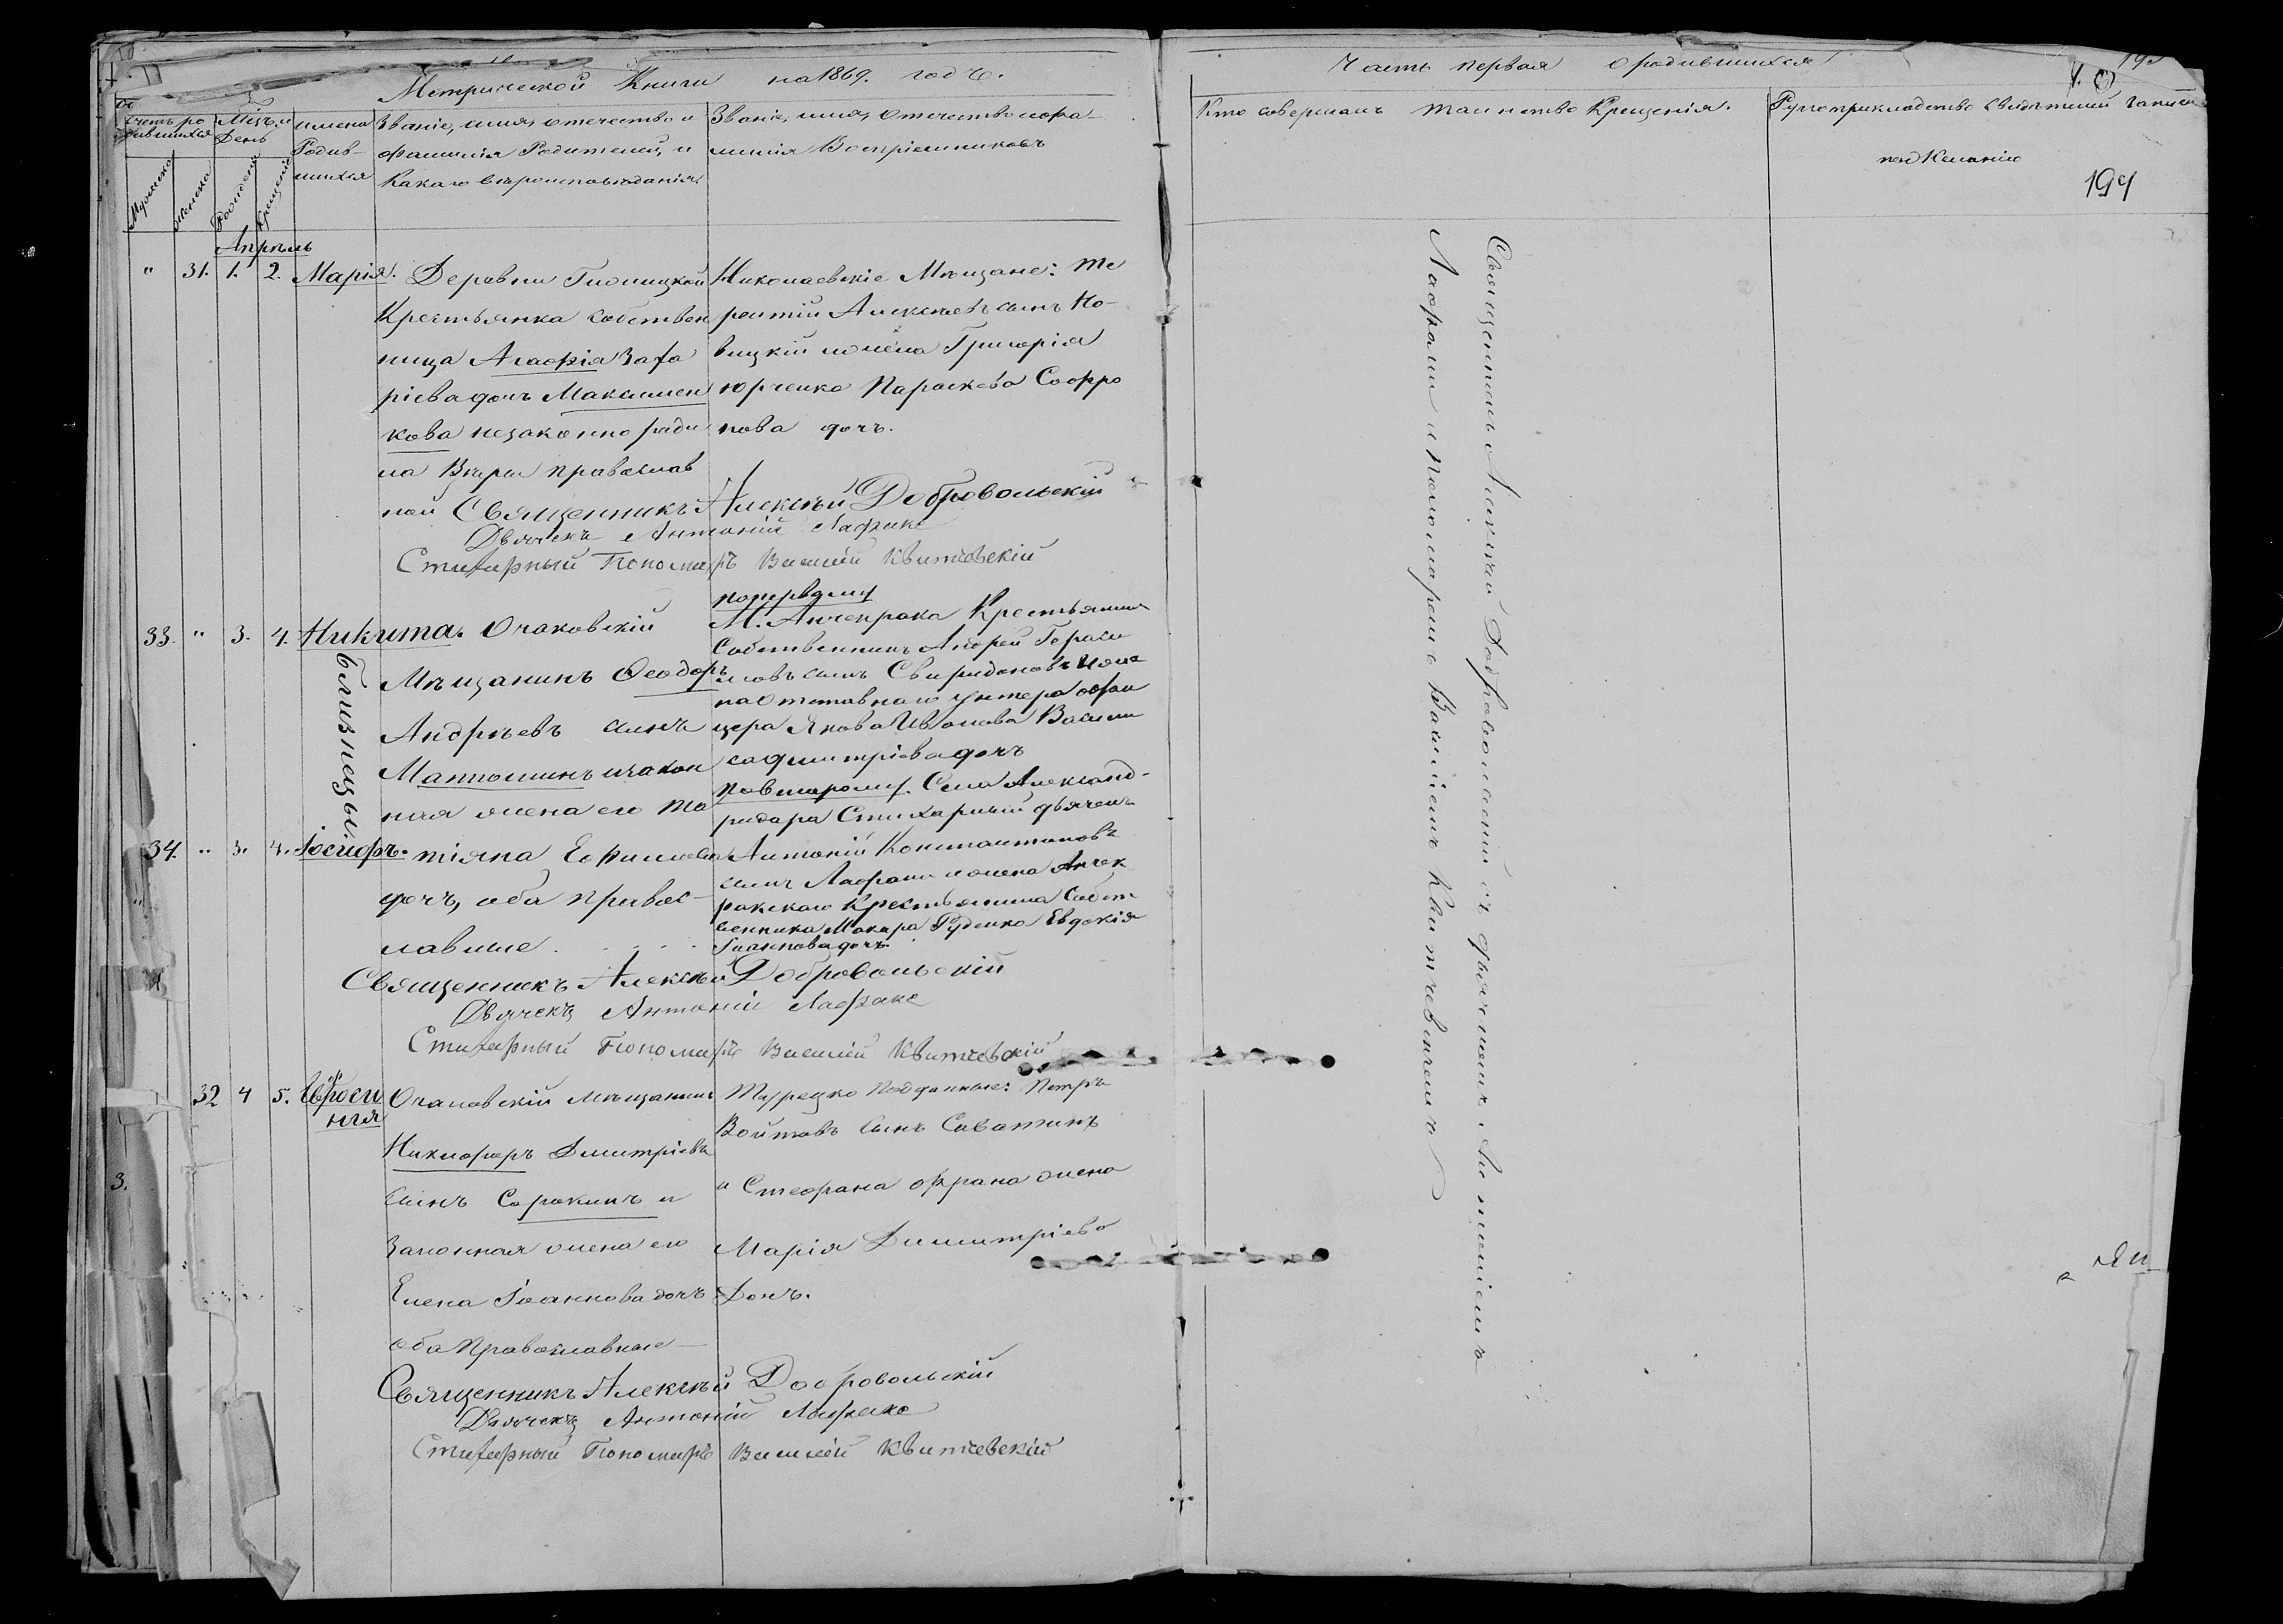 Метрической Книги на 1869. годъ.
Часть первая о родившихся
Счетъ родившихся
Мѣсяцъ и День
имена Родившихся
Званіе, имя, отечество и фамилія Родителей, и какаго вѣроисповѣданія
Званіе, имя, отечество и фамилія Воспріемниковъ
Кто совершалъ таинство Крещенія.
Рукоприкладство свидѣтелей записи
по желанію
194
Мужеска
женска
Рожденія
Крещенія
Апрѣль
" 31. 1. 2. Марія.
Деревни
Крестьянка собствен
ница Агафія Заха
ріева дочь Максимен
кова незаконно роди
ла Вѣры православ
ной
Николаевскіе Мѣщане: Те
рентій Алексѣевъ сынъ Но-
вицкій и жена Григорія
Юрченка Параскева Софро
нова дочь.
Священникъ Алексѣй Добровольскій
Дьячекъ Антоній Лафаки
Стихарный Пономарь Василій Квитчевскій
33. " 3. 4. Никита.
близнецы.
34. " 3. 4. Іосифъ.
Очаковскій
Мѣщанинъ Ѳеодоръ
Андрѣевъ сынъ
и закон
ная жена его Та
тіяна Ефимова
дочь, оба правос-
лавные
по первому
М. Анчекрака Крестьянинъ
Собственникъ Андрей Гераси
мовъ сынъ Свиридоновъ и же
на Отставнаго унтера офи
цера Якова Иванова Васили
са Димитріева дочь
по второму. Села Александ-
ридара Стихарный дьячекъ
Антоній Константиновъ
сынъ Лафаки и жена Анчек
ракскаго Крестьянина Собст
венника Макара Руденко Евдокія
Іоаннова дочь.
Священникъ Алексѣй Добровольскій
Дьячекъ Антоній Лафаки
Стихарный Пономарь Василій Квитчевскій
32 4 5. Ефроси
нія
Очаковскій мѣщанинъ
Никифоръ Димитріевъ
сынъ Сорокинъ и
Законная жена его
Елена Іоаннова дочь
оба Православные
Турецко подданные: Петръ
Войтовъ сынъ Саватинъ
и Стефана жена
Марія Димитріева
Дочь.
Священникъ Алексѣй Добровольскій
Дьячекъ Антоній Лафаки
Стихарный Пономарь Василій Квитчевскій
Священникъ Алексѣй Добровольскій съ дьячкомъ Антоніемъ
Лафаки и пономаремъ Василіемъ Квитчевскимъ
3.